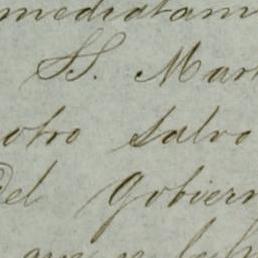 mediatam
SS. Mart
otro salvo
Del Gobiern